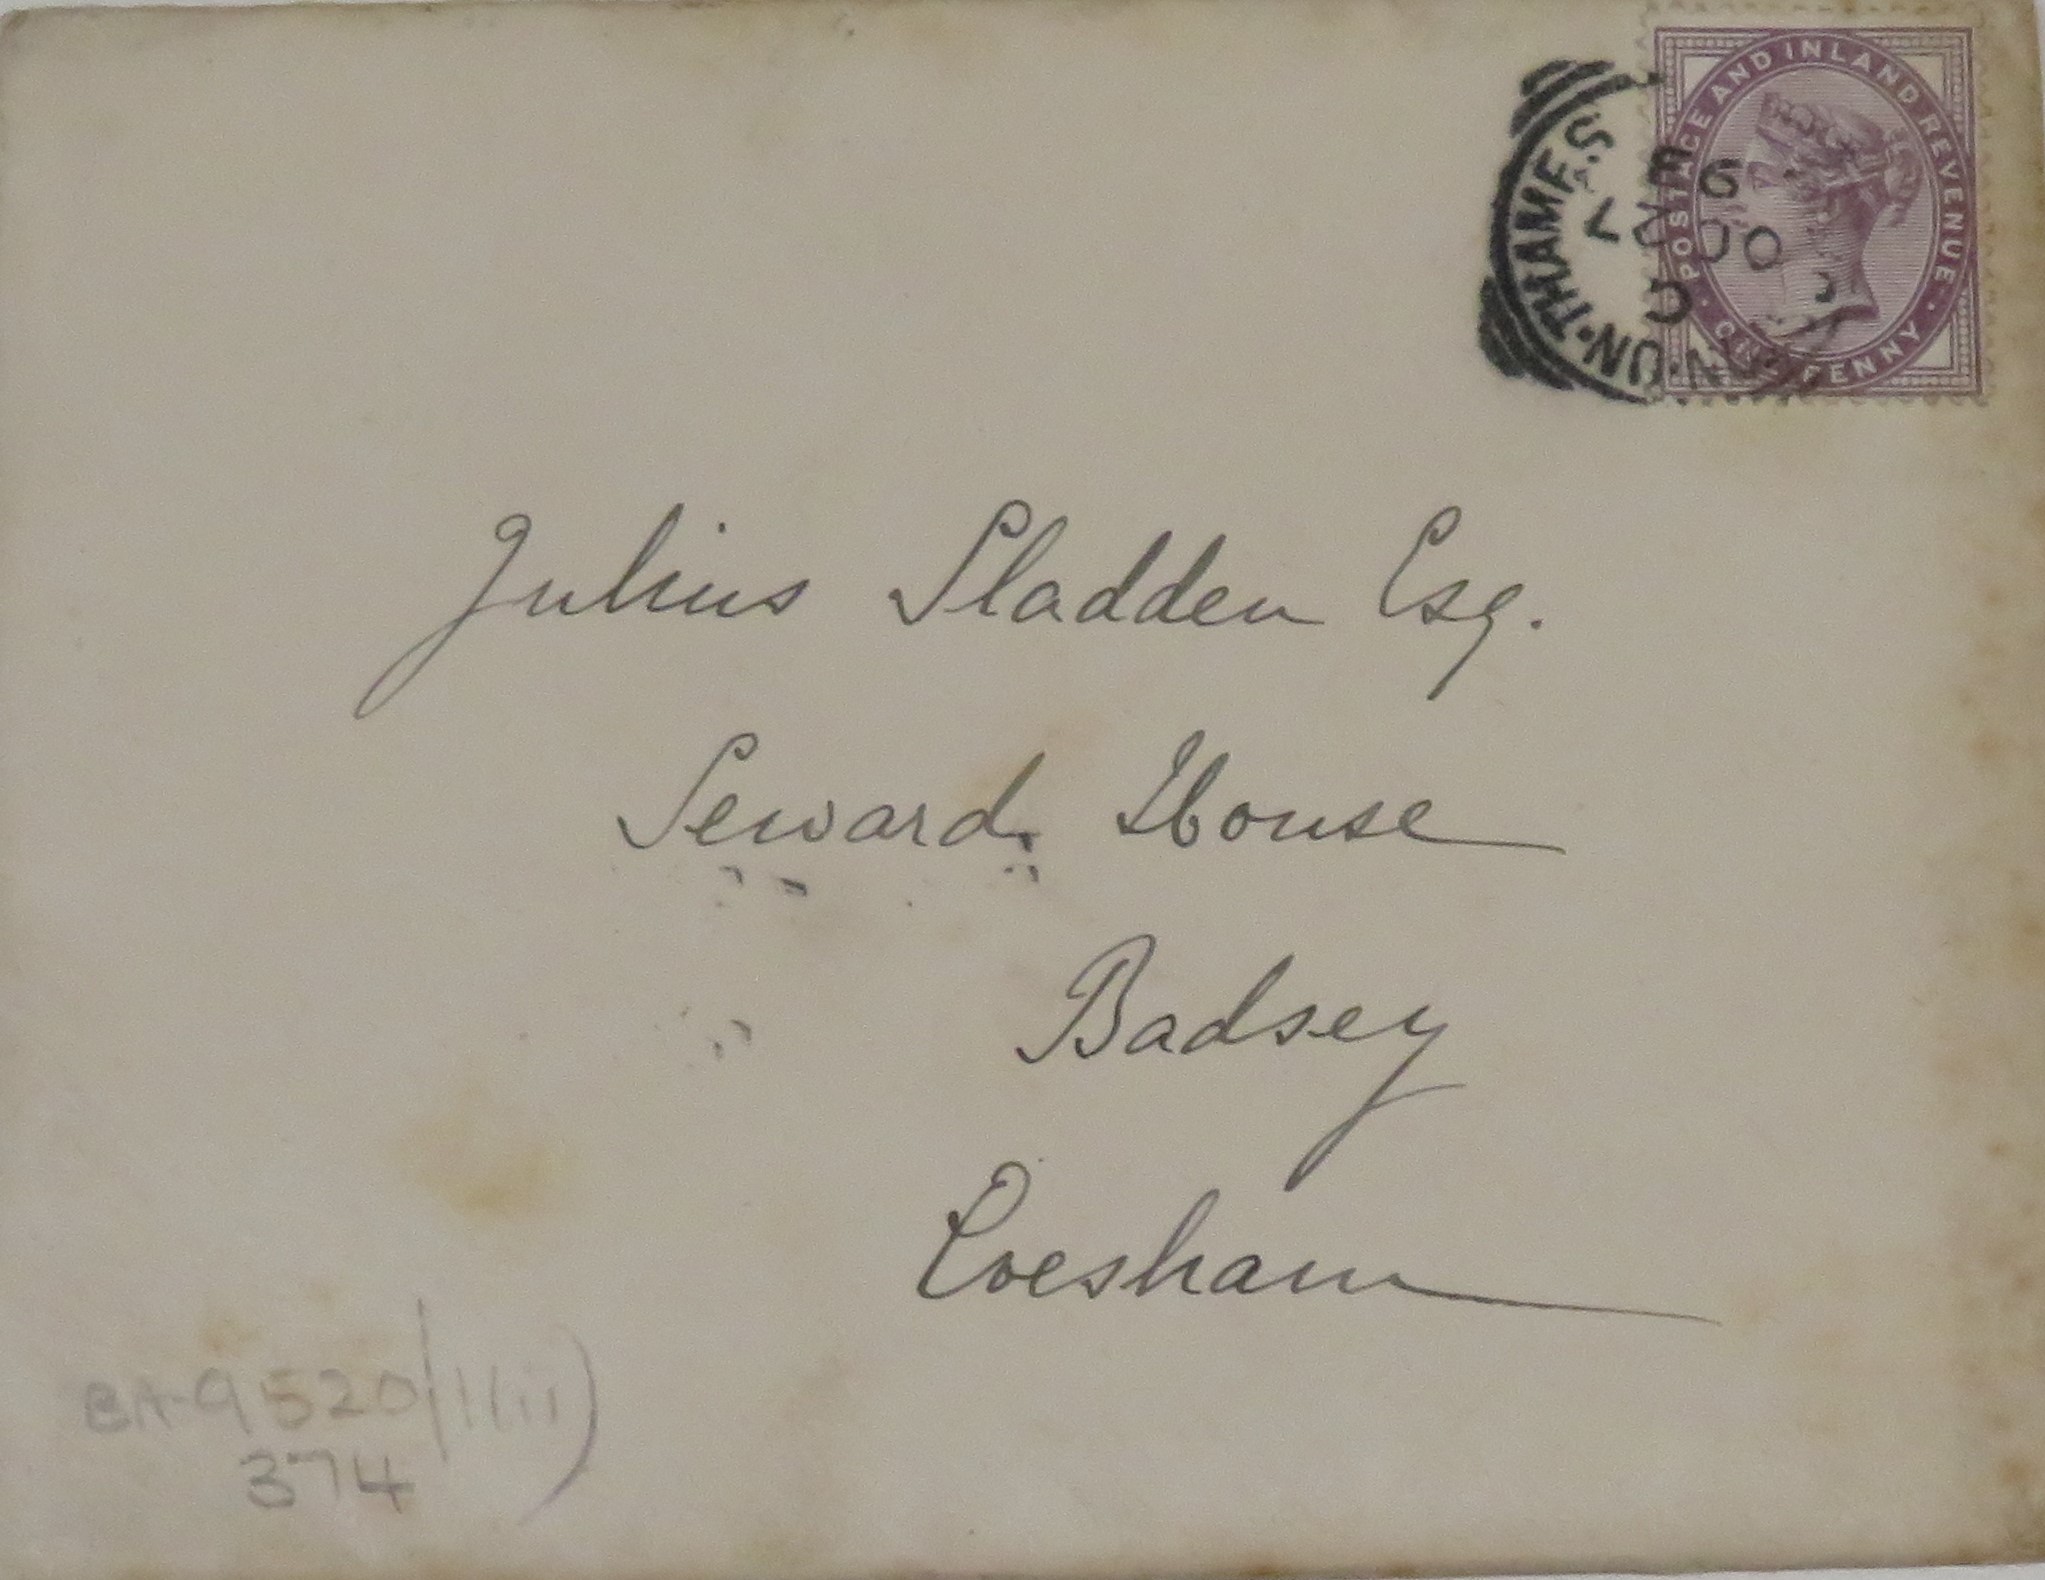 POSTAGE AND INLAND REVENUE
ONE PENNY
THAMES
00
Julius Sladden Esq.
Seward House
Badsey
Evesham
BA-9520/1(ii)
374